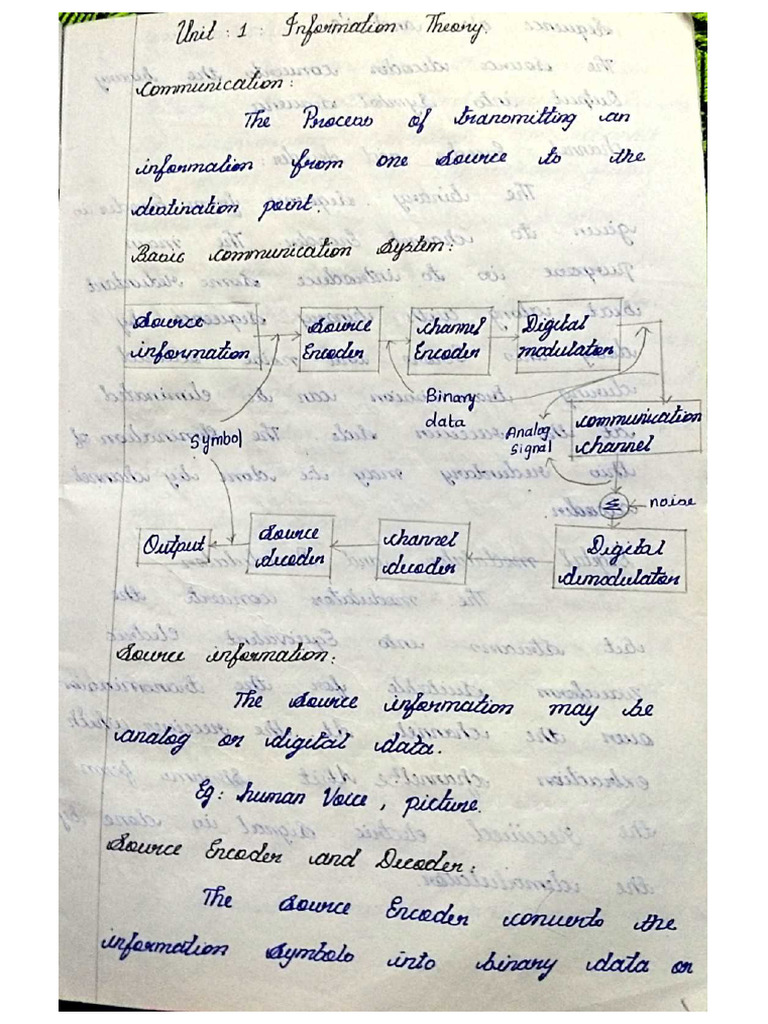 Unit : 1 : Information Theory.
Communication :
The Process of transmitting an
information from one source to the
destination point.
Basic communication System :
Source
information
Source
Encoder
channel
Encoder
Digital
modulation
Binary
data
Symbol
Analog
Signal
communication
channel
Σ
noise
Output
Source
decoder
channel
decoder
Digital
demodulation
Source information :
The source information may be
analog or digital data.
Eg : human Voice , picture.
Source Encoder and Decoder :
The source Encoder converts the
information symbols into binary data or